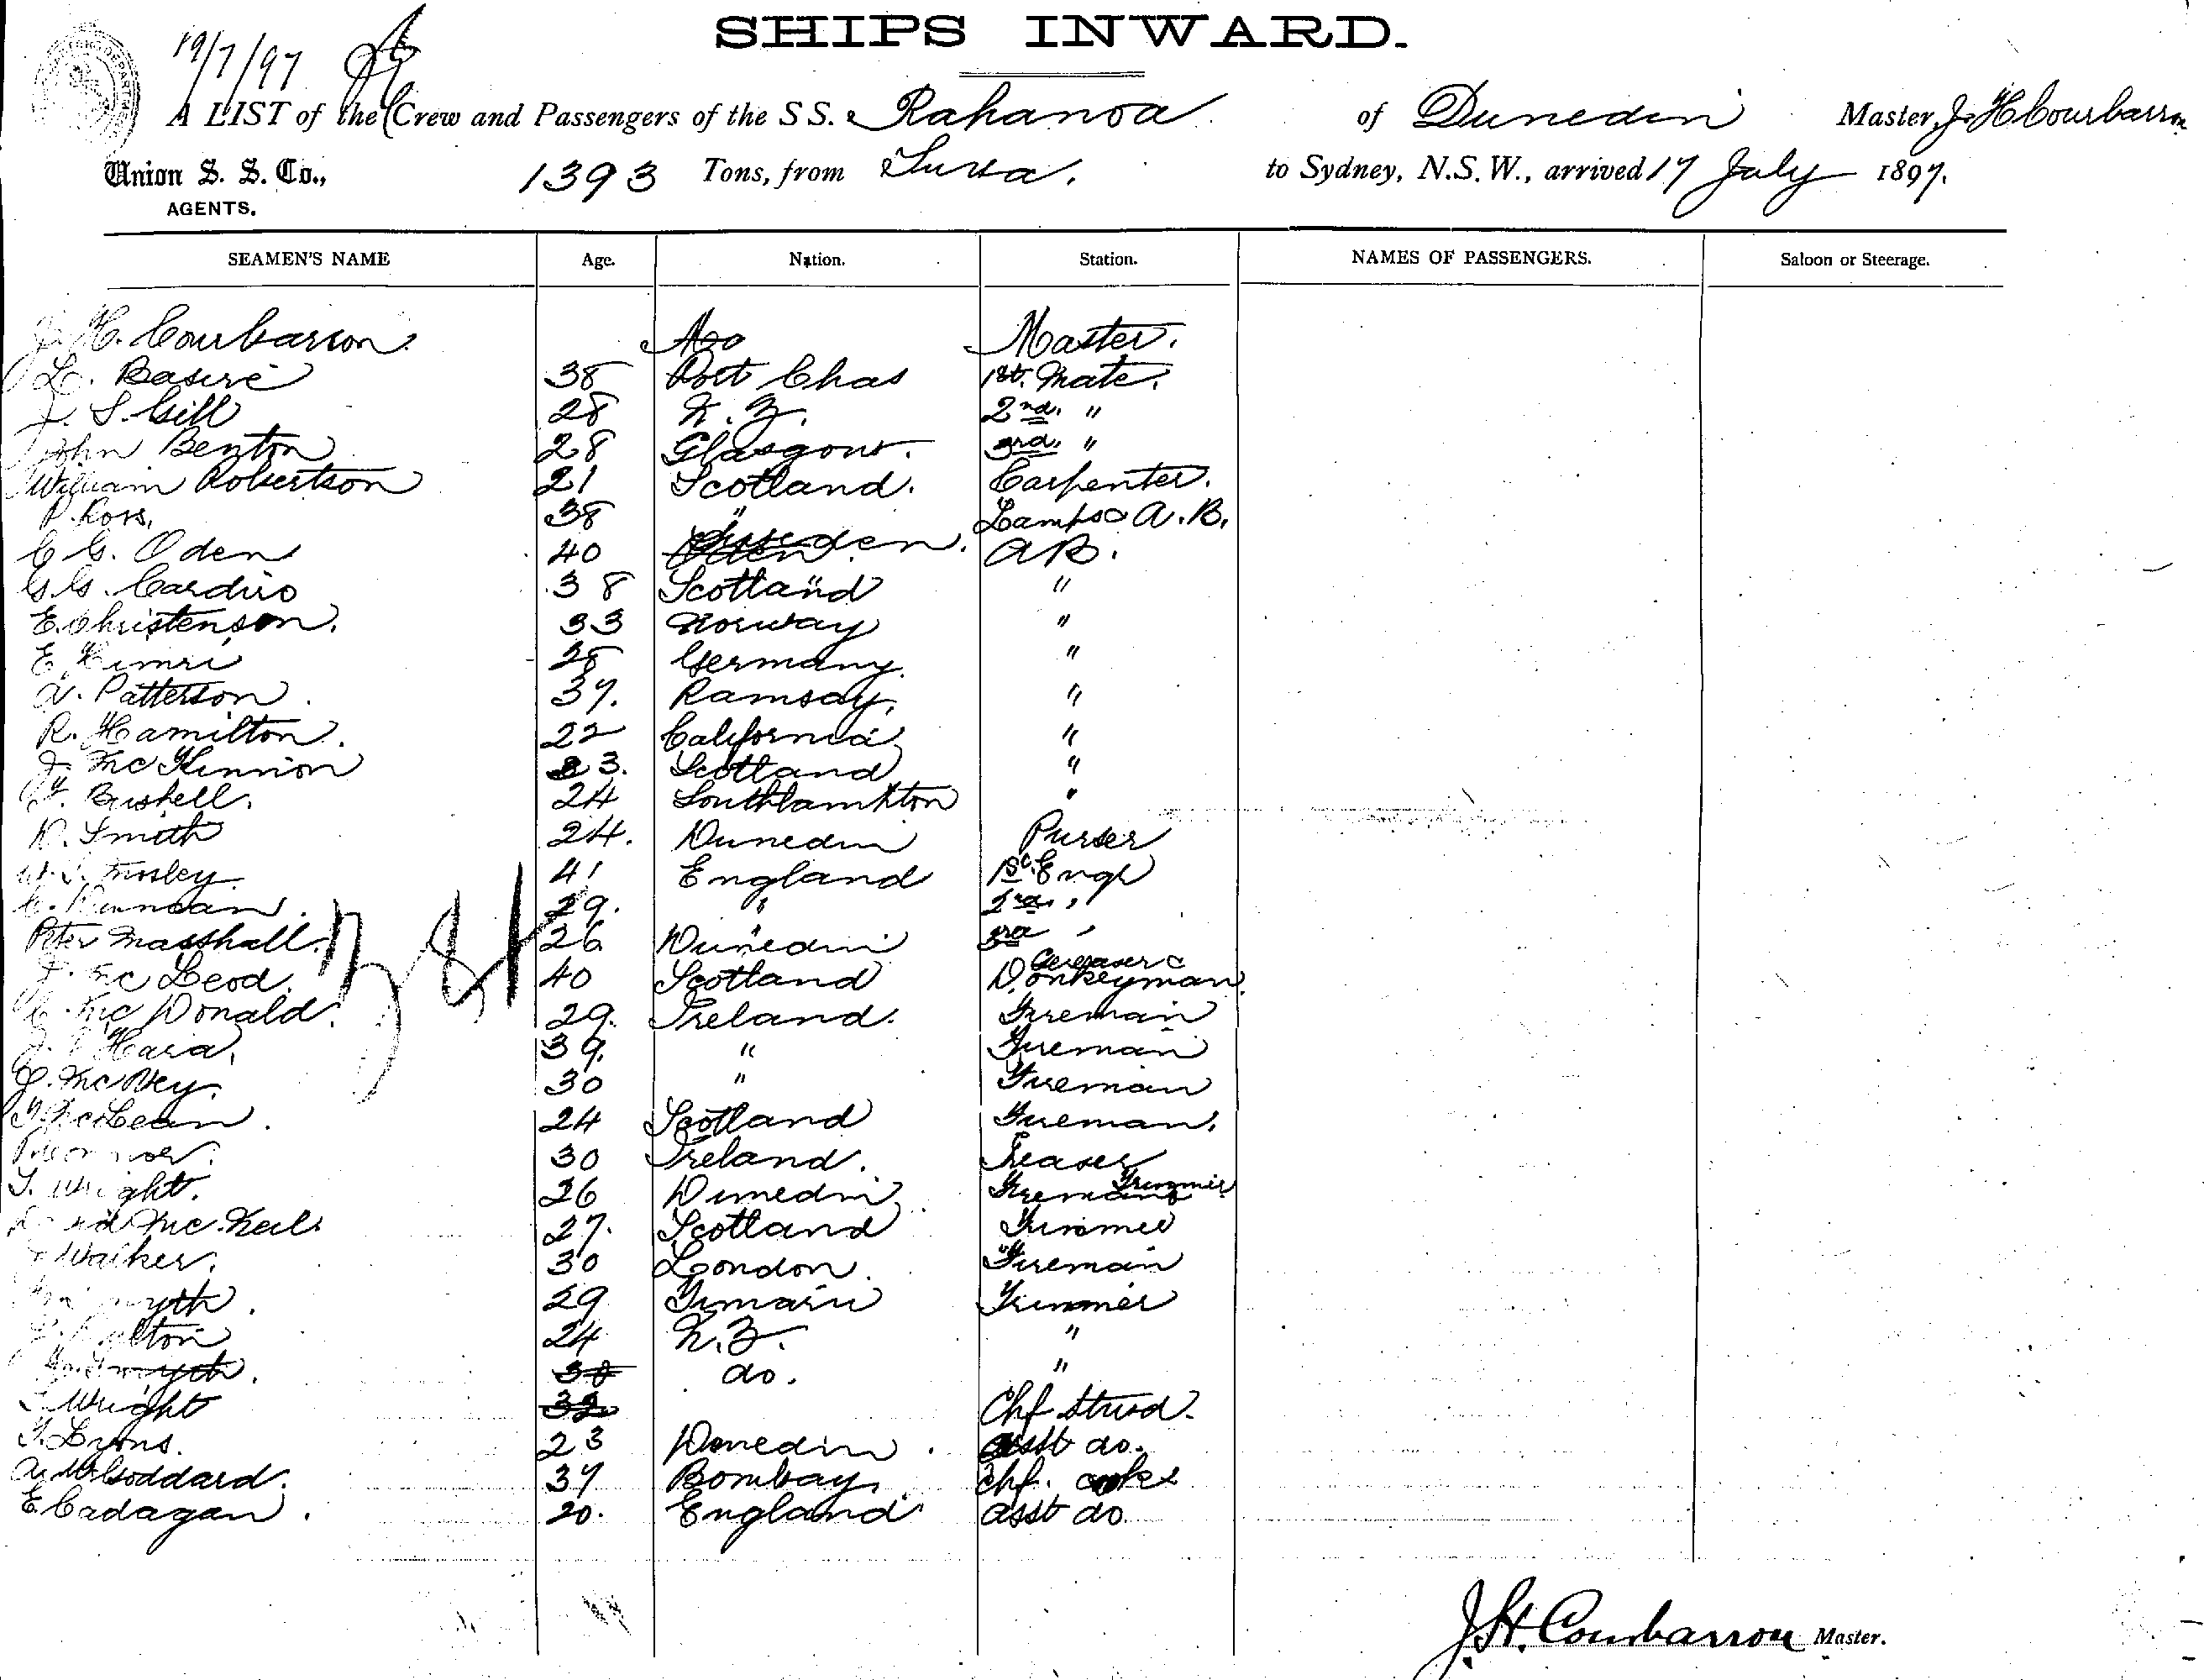 SHIPS INWARD.
19/7/97
A LIST of the Crew and Passengers of the S S. Rakanoa of Dunedin Master, J. H Courbarron
Union S. S. Co., 1393 Tons, from Suva. to Sydney, N.S.W., arrived 17 July 1897.
AGENTS.
SEAMEN'S NAME Age. Nation. Station. NAMES OF PASSENGERS. Saloon or Steerage.
J. H. Courbarron. Master.
L. Basire 38 Port Chas 1st. Mate.
J. S. Gill 28 N. Z. 2nd. "
John Benton 28 Glasgow. 3rd. "
William Robertson 21 Scotland. Carpenter.
P. Ross. 38 " Lamps & A. B.
C G. Oden 40 Sweden. AB.
G. G. 38 Scotland "
E. Christenson. 33 Norway "
E 28 Germany. "
A. Patterson. 37. Ramsay. "
R. Hamilton. 22 California "
J. McKinnion 23. Scotland "
Bushell. 24 Southhamkton "
D. Smith 24. Dunedin Purser
W. Mosley. 41 England 1st. Engr
Duncan. 29. " 2nd "
Peter Marshall. 26 Dunedin 3rd "
Mc Leod. 40 Scotland Greaser & Donkeyman.
Mc Donald. 29. Ireland. Fireman
J. O'Hara, 39. " Fireman
McVey. 30 " Fireman
McLean. 24 Scotland Fireman.
30 Ireland. Greaser
T. Wright. 26 Dunedin. Fireman Trimmer
Mc. Neil. 27. Scotland Trimmer
Walker. 30 London. Fireman
29 Timaru Trimmer
24 N.Z. "
30 do. "
Wright 32 Chf Stwd.
Lyons. 23 Dunedin. Asst do.
A. W. Goddard. 37 Bombay. Chf. cook
E Cadagan. 20. England asst do
J. H. Courbarron Master.